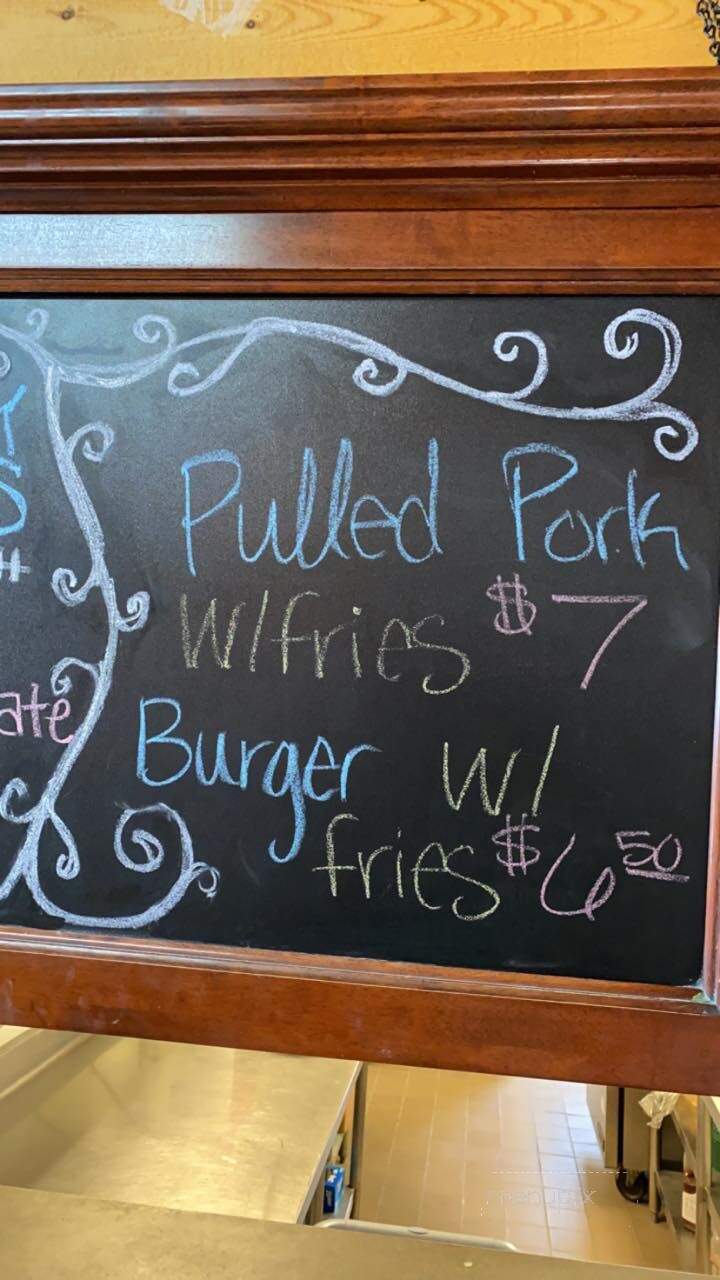 Pulled Pork
W/fries $7
Burger W/
fries $6 50
ate
menupix